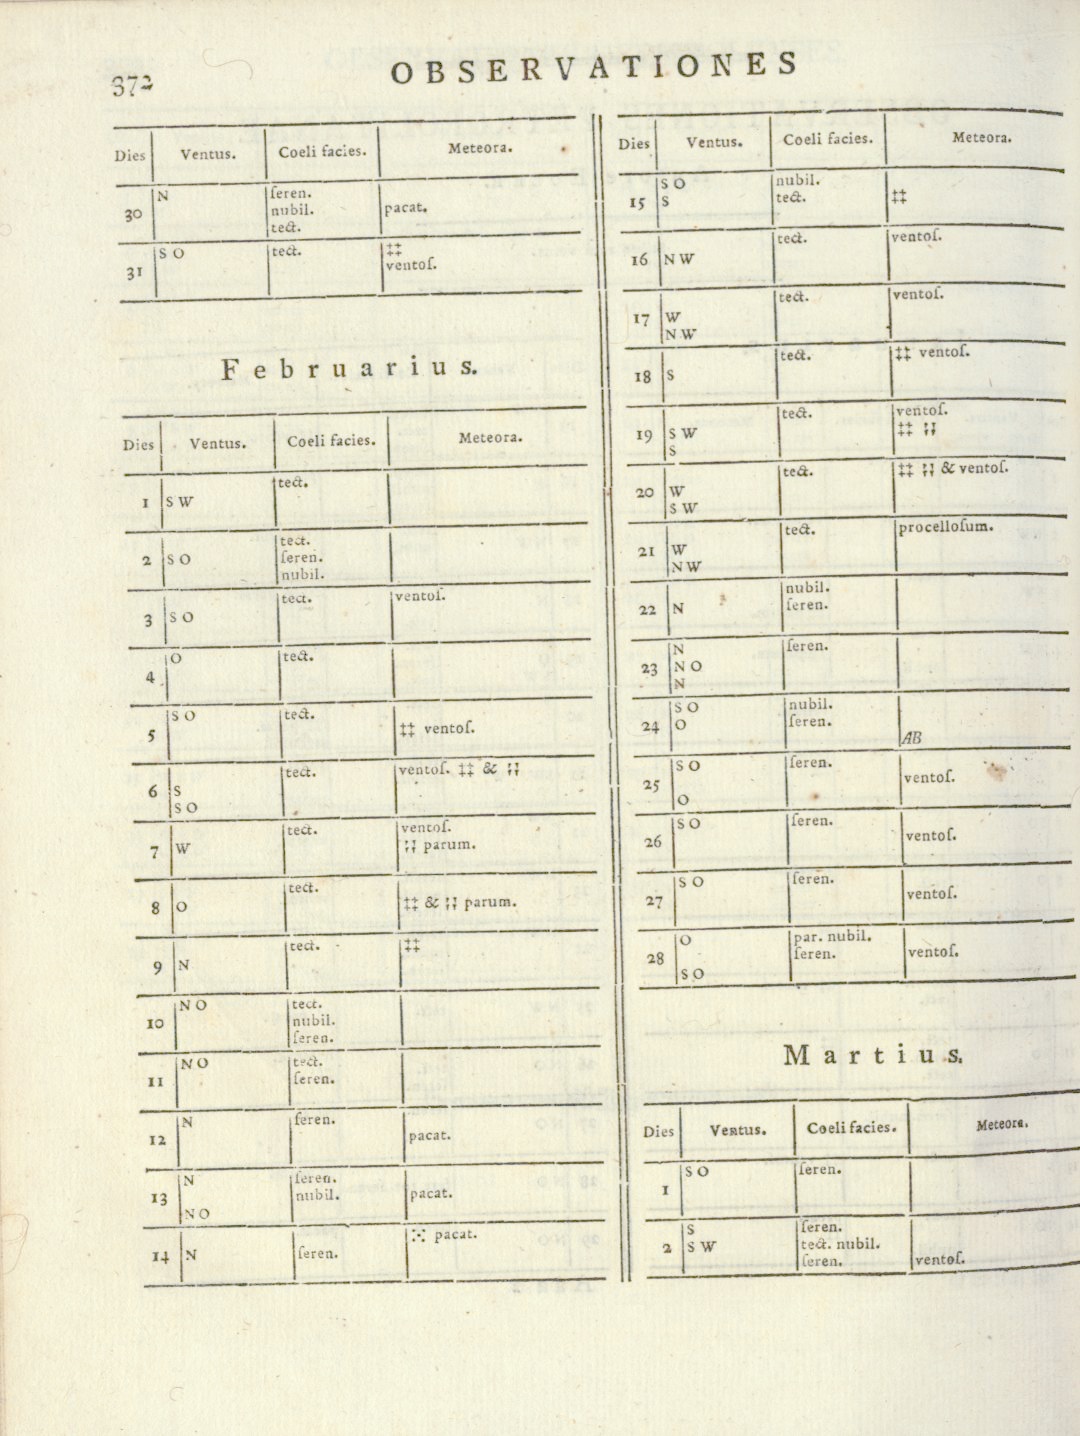 372
OBSERVATIONES
Dies Ventus. Coeli facies. Meteora.
30 N ſeren. pacat.
nubil.
tect.
31 S O tect. ‡‡
ventoſ.
Februarius.
Dies Ventus. Coeli facies. Meteora.
1 S W tect.
2 S O tect.
ſeren.
nubil.
3 S O tect. ventoſ.
4 O tect.
5 S O tect. ‡‡ ventoſ.
6 S tect. ventoſ. ‡‡ & ⁏⁏
S O
7 W tect. ventoſ.
⁏⁏ parum.
8 O tect. ‡‡ & ⁏⁏ parum.
9 N tect. ‡‡
10 N O tect.
nubil.
ſeren.
11 N O tect.
ſeren.
12 N ſeren. pacat.
13 N ſeren. pacat.
N O nubil.
14 N ſeren. ⁙ pacat.
Dies Ventus. Coeli facies. Meteora.
15 S O nubil. ‡‡
S tect.
16 N W tect. ventoſ.
17 W tect. ventoſ.
N W
18 S tect. ‡‡ ventoſ.
19 S W tect. ventoſ.
S ‡‡ ⁏⁏
20 W tect. ‡‡ ⁏⁏ & ventoſ.
S W
21 W tect. procelloſum.
N W
22 N nubil.
ſeren.
23 N ſeren.
N O
N
24 S O nubil.
O ſeren. AB
25 S O ſeren. ventoſ.
O
26 S O ſeren. ventoſ.
27 S O ſeren. ventoſ.
28 O par. nubil. ventoſ.
S O ſeren.
Martius.
Dies Ventus. Coeli facies. Meteora.
1 S O ſeren.
2 S ſeren.
S W tect. nubil.
ſeren. ventoſ.